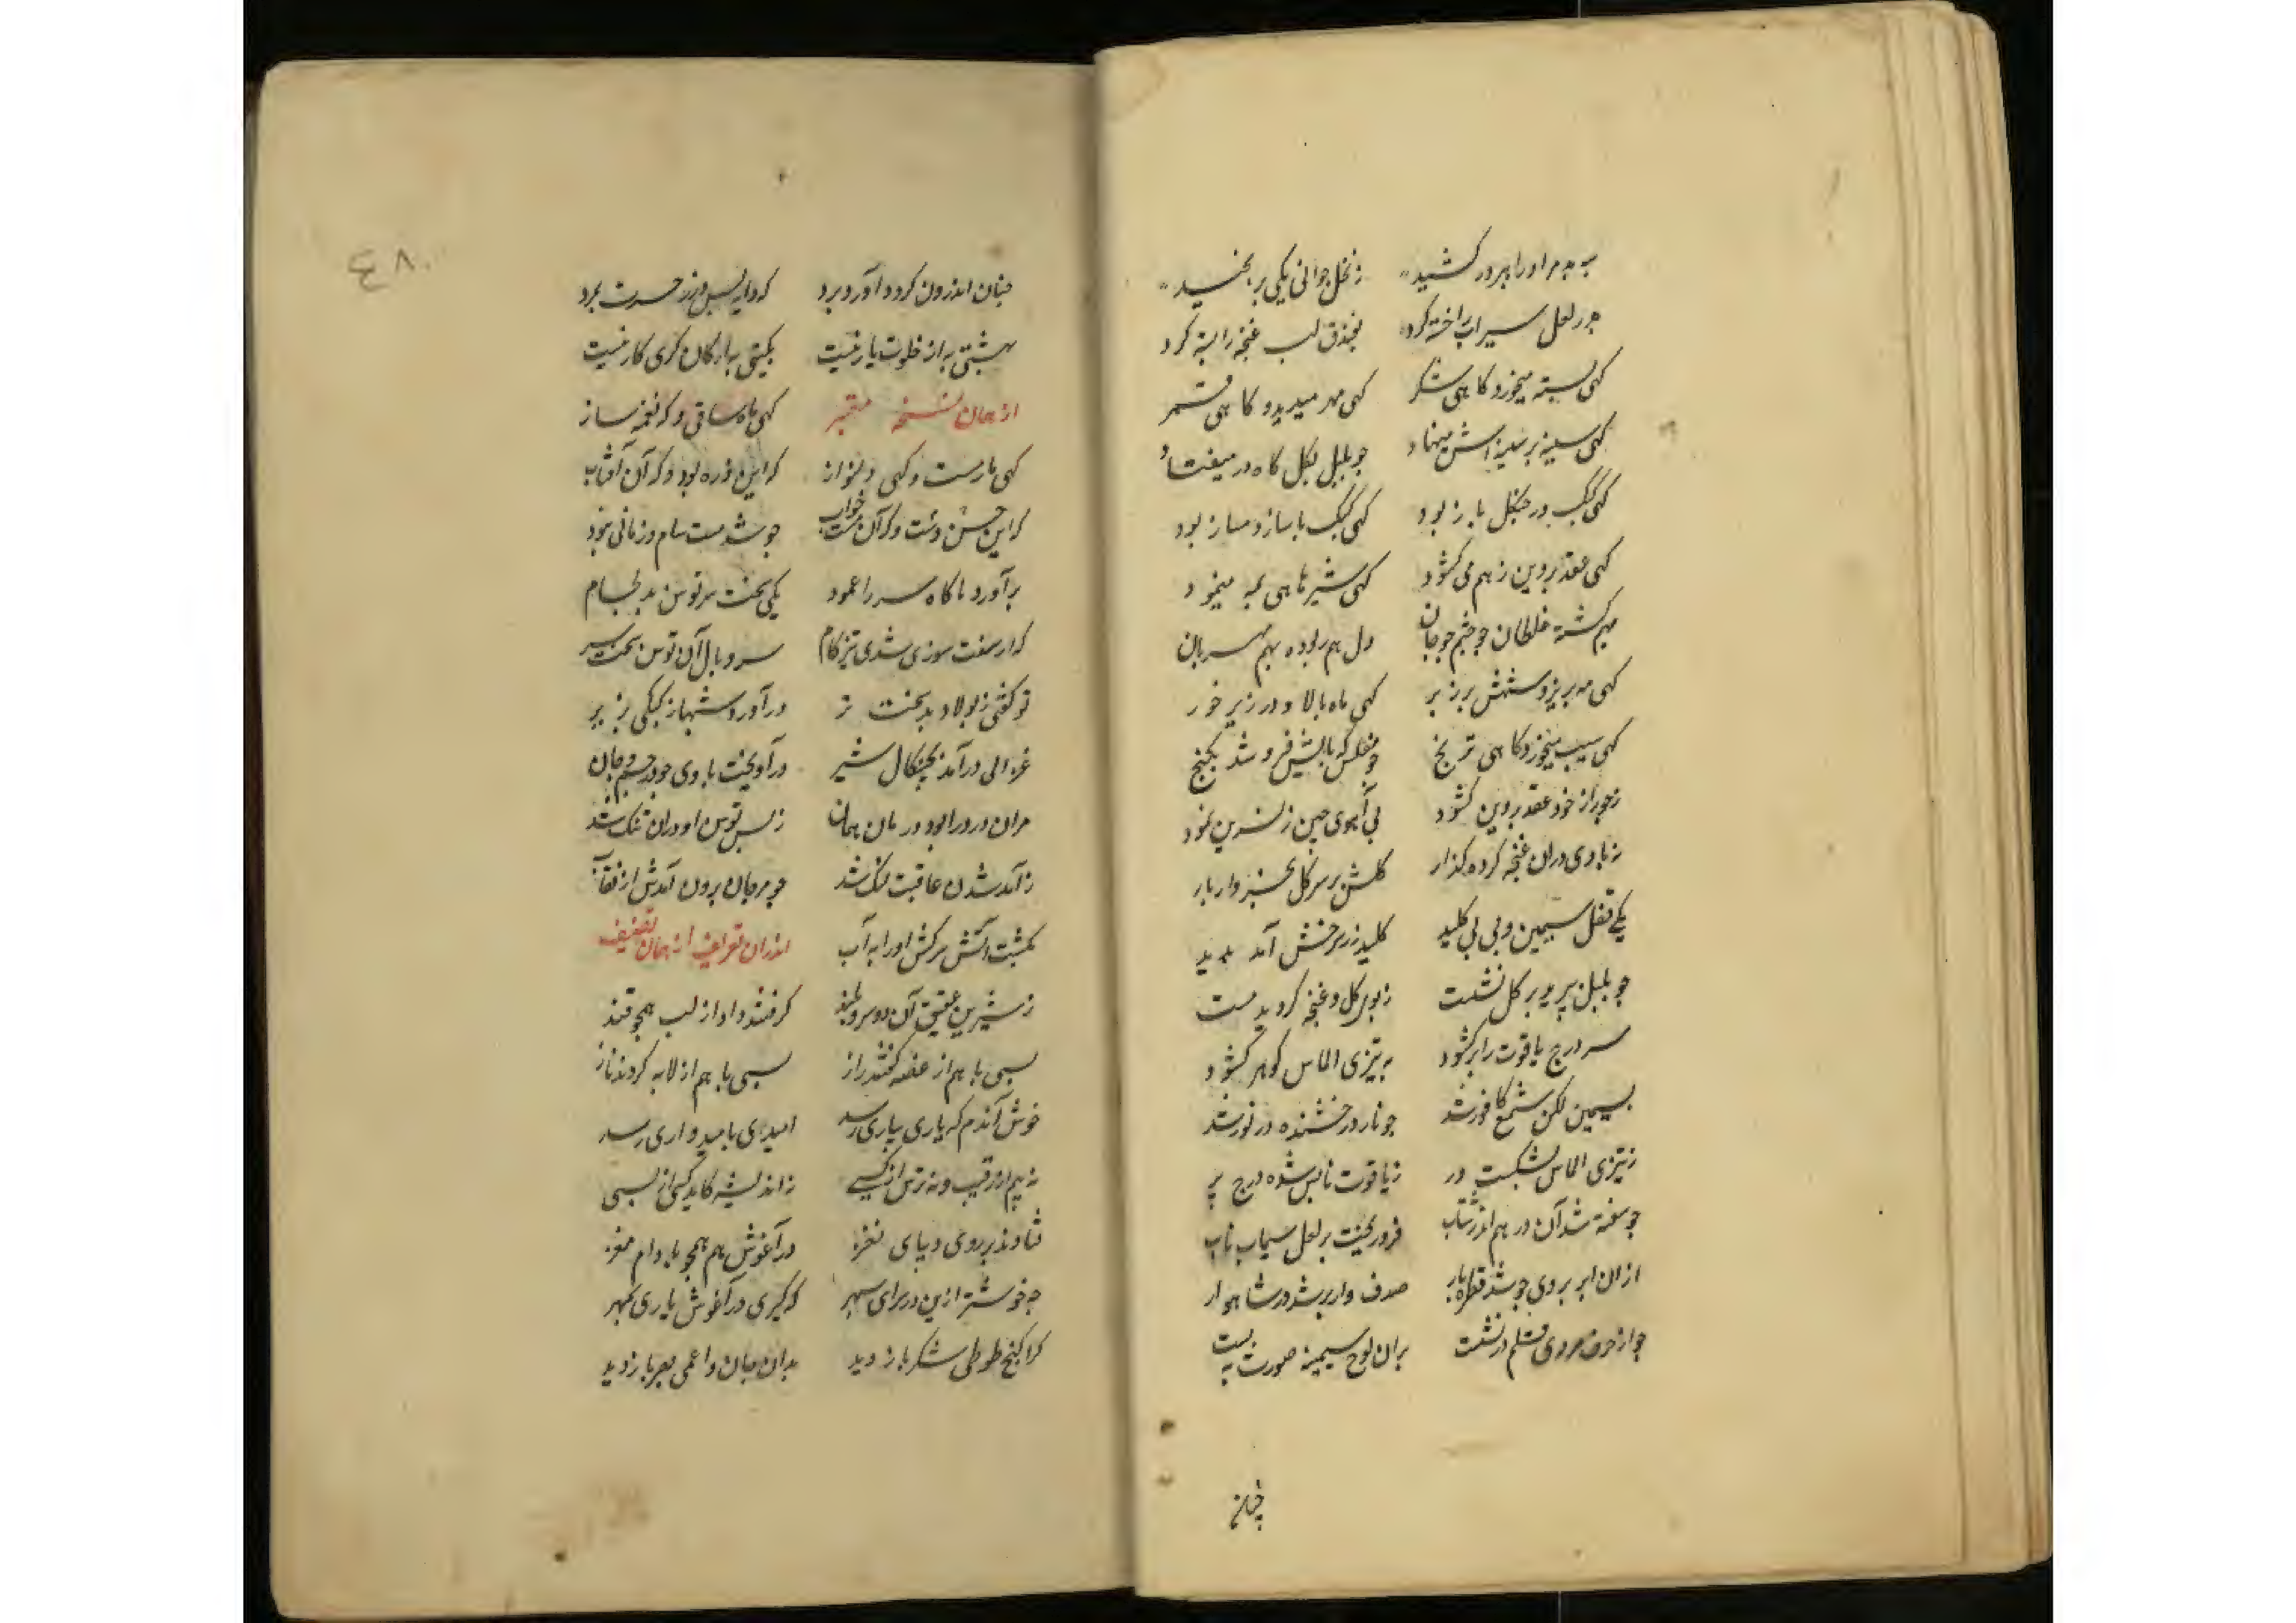 زنخل جوانی یکی بر بچید
جو در لعل سیراب را خسته کرد بفندق لب غنچه را بسته کرد
کهی پسته میخورد کاهی شکر کهی مهر میدید و کاهی قمر
کهی سینه بر سینه اش مینهاد جو بلبل بکل کاه در میفتاد
کهی کبک در چنکل باز بود کهی کبک با باز دمساز بود
کهی عقد پروین ز هم می کشود کهی شیر ماهی به مینمود
بهم کشته غلطان جو جان دل هم ربوده بهم مهربان
کهی مه بزیر و بر زبر کهی ماه بالا و در زیر خور
کهی سیب میخورد کاهی ترنج جو مفلس که فرو شد بکنج
ز خود عقد پروین کشود پی آهوی چین ز نسرین نمود
ز بادی دران غنچه کرده کذار کلش بر سر کل
یکی قفل سیمین و بی بی کلید کلید زر سرخش آمد بدید
جو بلبل بپرید بر کل نشست ز بوی کل و غنچه کردید مست
سر درج یاقوت را برکشود به تیزی الماس کوهر کشود
بسیمین لکن شمع کافور شد جو نار درخشنده در نور شد
ز تیزی الماس بشکست در ز یاقوت نابش شده درج پر
جو سفته شد آن در هم اندر شتاب فرو ریخت بر لعل سیماب ناب
ازان ابر بروی جو شد قطره بار صدف وار پر شد در شاهوار
جو از حرف قلم در نشست بران لوح سیمینه صورت به بست
چنان
٤٨٠
چنان اندرون کرد و آورد برد که دایه پس در ز حسرت بمرد
بهشتی به از خلوت یار نیست بکیتی به از کان کری کار نیست
از همان نسخه معتبر کهی ماه ساقی و که نغمه ساز
کهی یار مست و کهی دلنواز که این ذره بود و که آن آفتاب
که این جست و که آن مست خواب جو شد مست سام و زمانی غنود
برآورد ناکاه سر را عمود یکی تخت بر توسن بد لجام
که از سفت سوزی شدی تیز کام سر و یال آن توسن
تو کفتی ز پولاد بد تخت نر درآورد شهباز کبکی بزیر
غزالی درآمد بچنکال شیر درآویخت با وی جو در جسم جان
مران درد را بود درمان همان ز بس توسن او دران تنک شد
ز آمد شدن عاقبت لنک شد جو مرجان برون آمدش از نقاب
بکشت آتش سرکش او را به آب اندران تعریف از همان تصنیف
ز شیرین عقیق آن دو سرو بلند کرفتند داد از لب همچو قند
بسی با هم از غصه کفتند راز بسی با هم از لابه کردند ناز
خوش آندم که یاری بیاری رسد امیدی بامیدواری رسد
نه بیم از رقیب و نه ترس از کسی نه اندیشه کاید کس از پسی
فتاده بر روی دیبای نغز در آغوش هم همجو بادام مغز
چه خوشتر ازین در سرای سپهر که کیری در آغوش یاری بمهر
کرا کنج طوطی شکر باز دید بدان سان و اعمی بصر باز دید